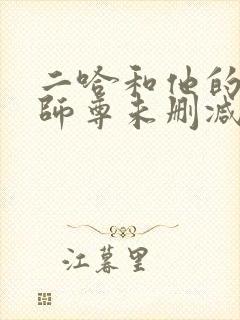 二哈和他的
师尊未删减
江暮里